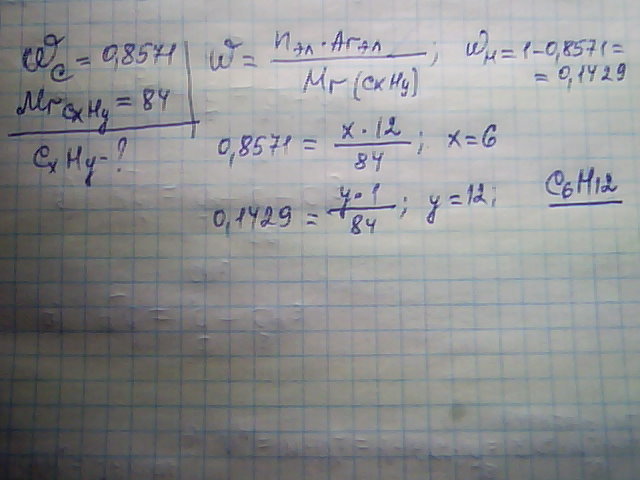 W_C = 0,8571
Mr_CxHy = 84
CxHy - ?
W = nэл · Arэл / Mr (CxHy) ; W_H = 1 - 0,8571 =
= 0,1429
0,8571 = x · 12 / 84 ; x = 6
0,1429 = y · 1 / 84 ; y = 12; C6H12